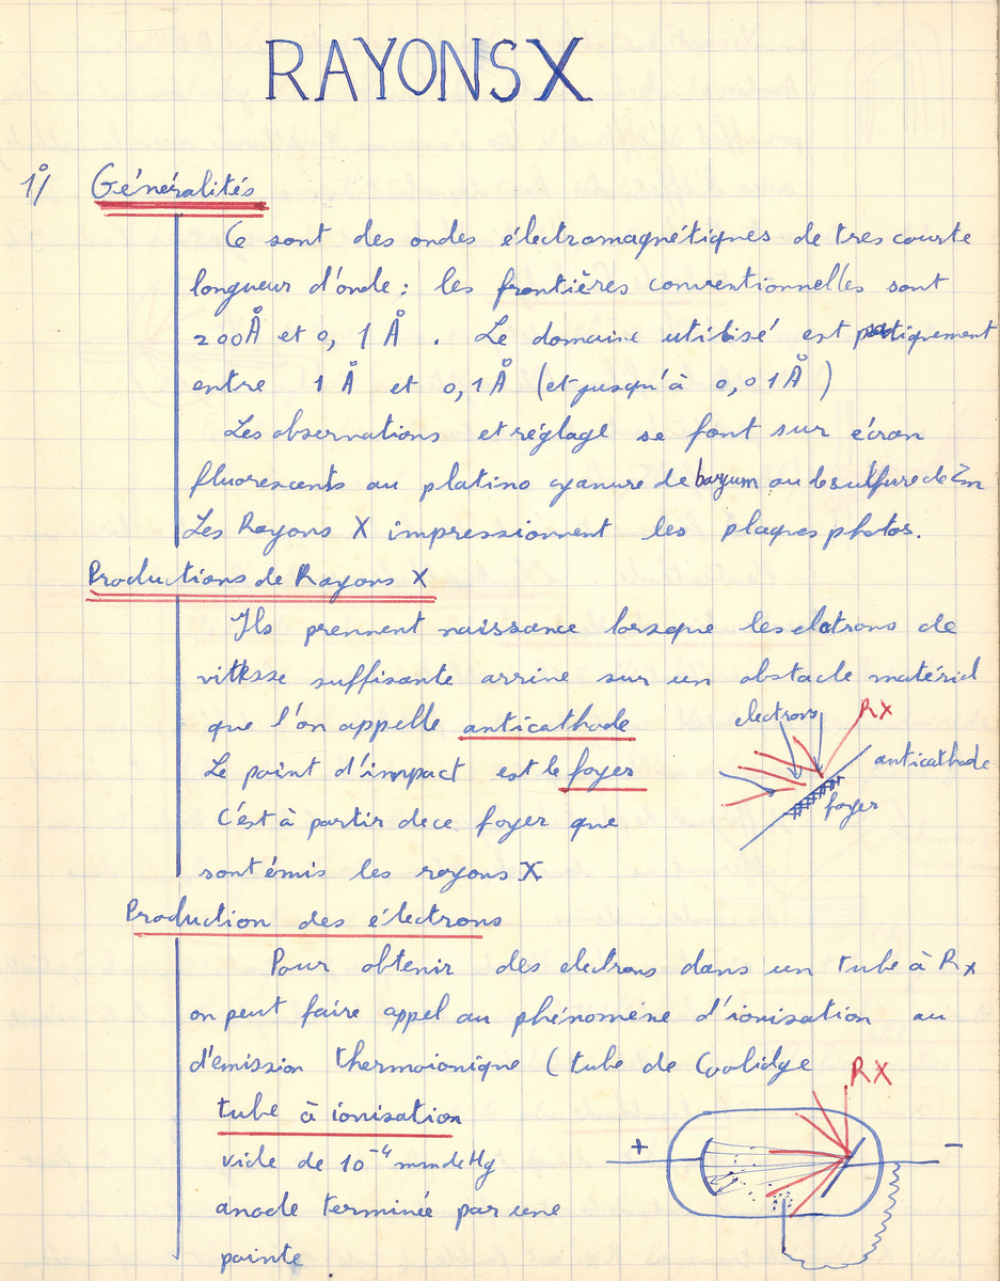 RAYONS X
1°/ Générálités
Ce sont des ondes électromagnétiques de tres courte
longueur d'onde ; les frontières conventionnelles sont
200Å et 0, 1 Å . Le domaine utilisé est pratiquement
entre 1 Å et 0,1Å (et jusqu'à 0,01Å )
Les observations et réglage se font sur écran
fluorescents au platino cyanure de baryum ou de sulfure de Zn
Les Rayons X impressionnent les plaques photos.
Productions de Rayons X
Ils prennent naissance lorsque les elctrons de
vitesse suffisante arrive sur un obstacle matériel
que l'on appelle anticathode
Le point d'impact est le foyer
C'est à partir de ce foyer que
sont émis les rayons X
electrons
RX
anticathode
foyer
Production des électrons
Pour obtenir des electrons dans un tube à Rx
on peut faire appel au phénomène d'ionisation au
d'emission thermoionique ( tube de Coolidge
tube à ionisation
vide de 10⁻⁴ mm de Hg
anode terminée par une
pointe
RX
+
−